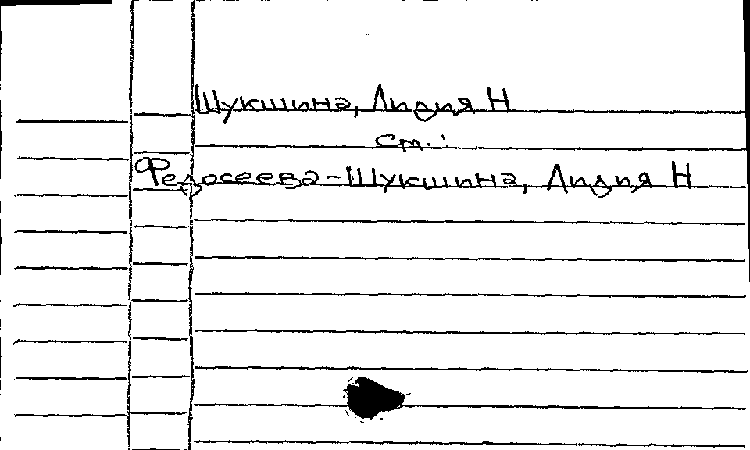 Шукшина, Лидия Н
см.:
Федосеева-Шукшина, Лидия Н